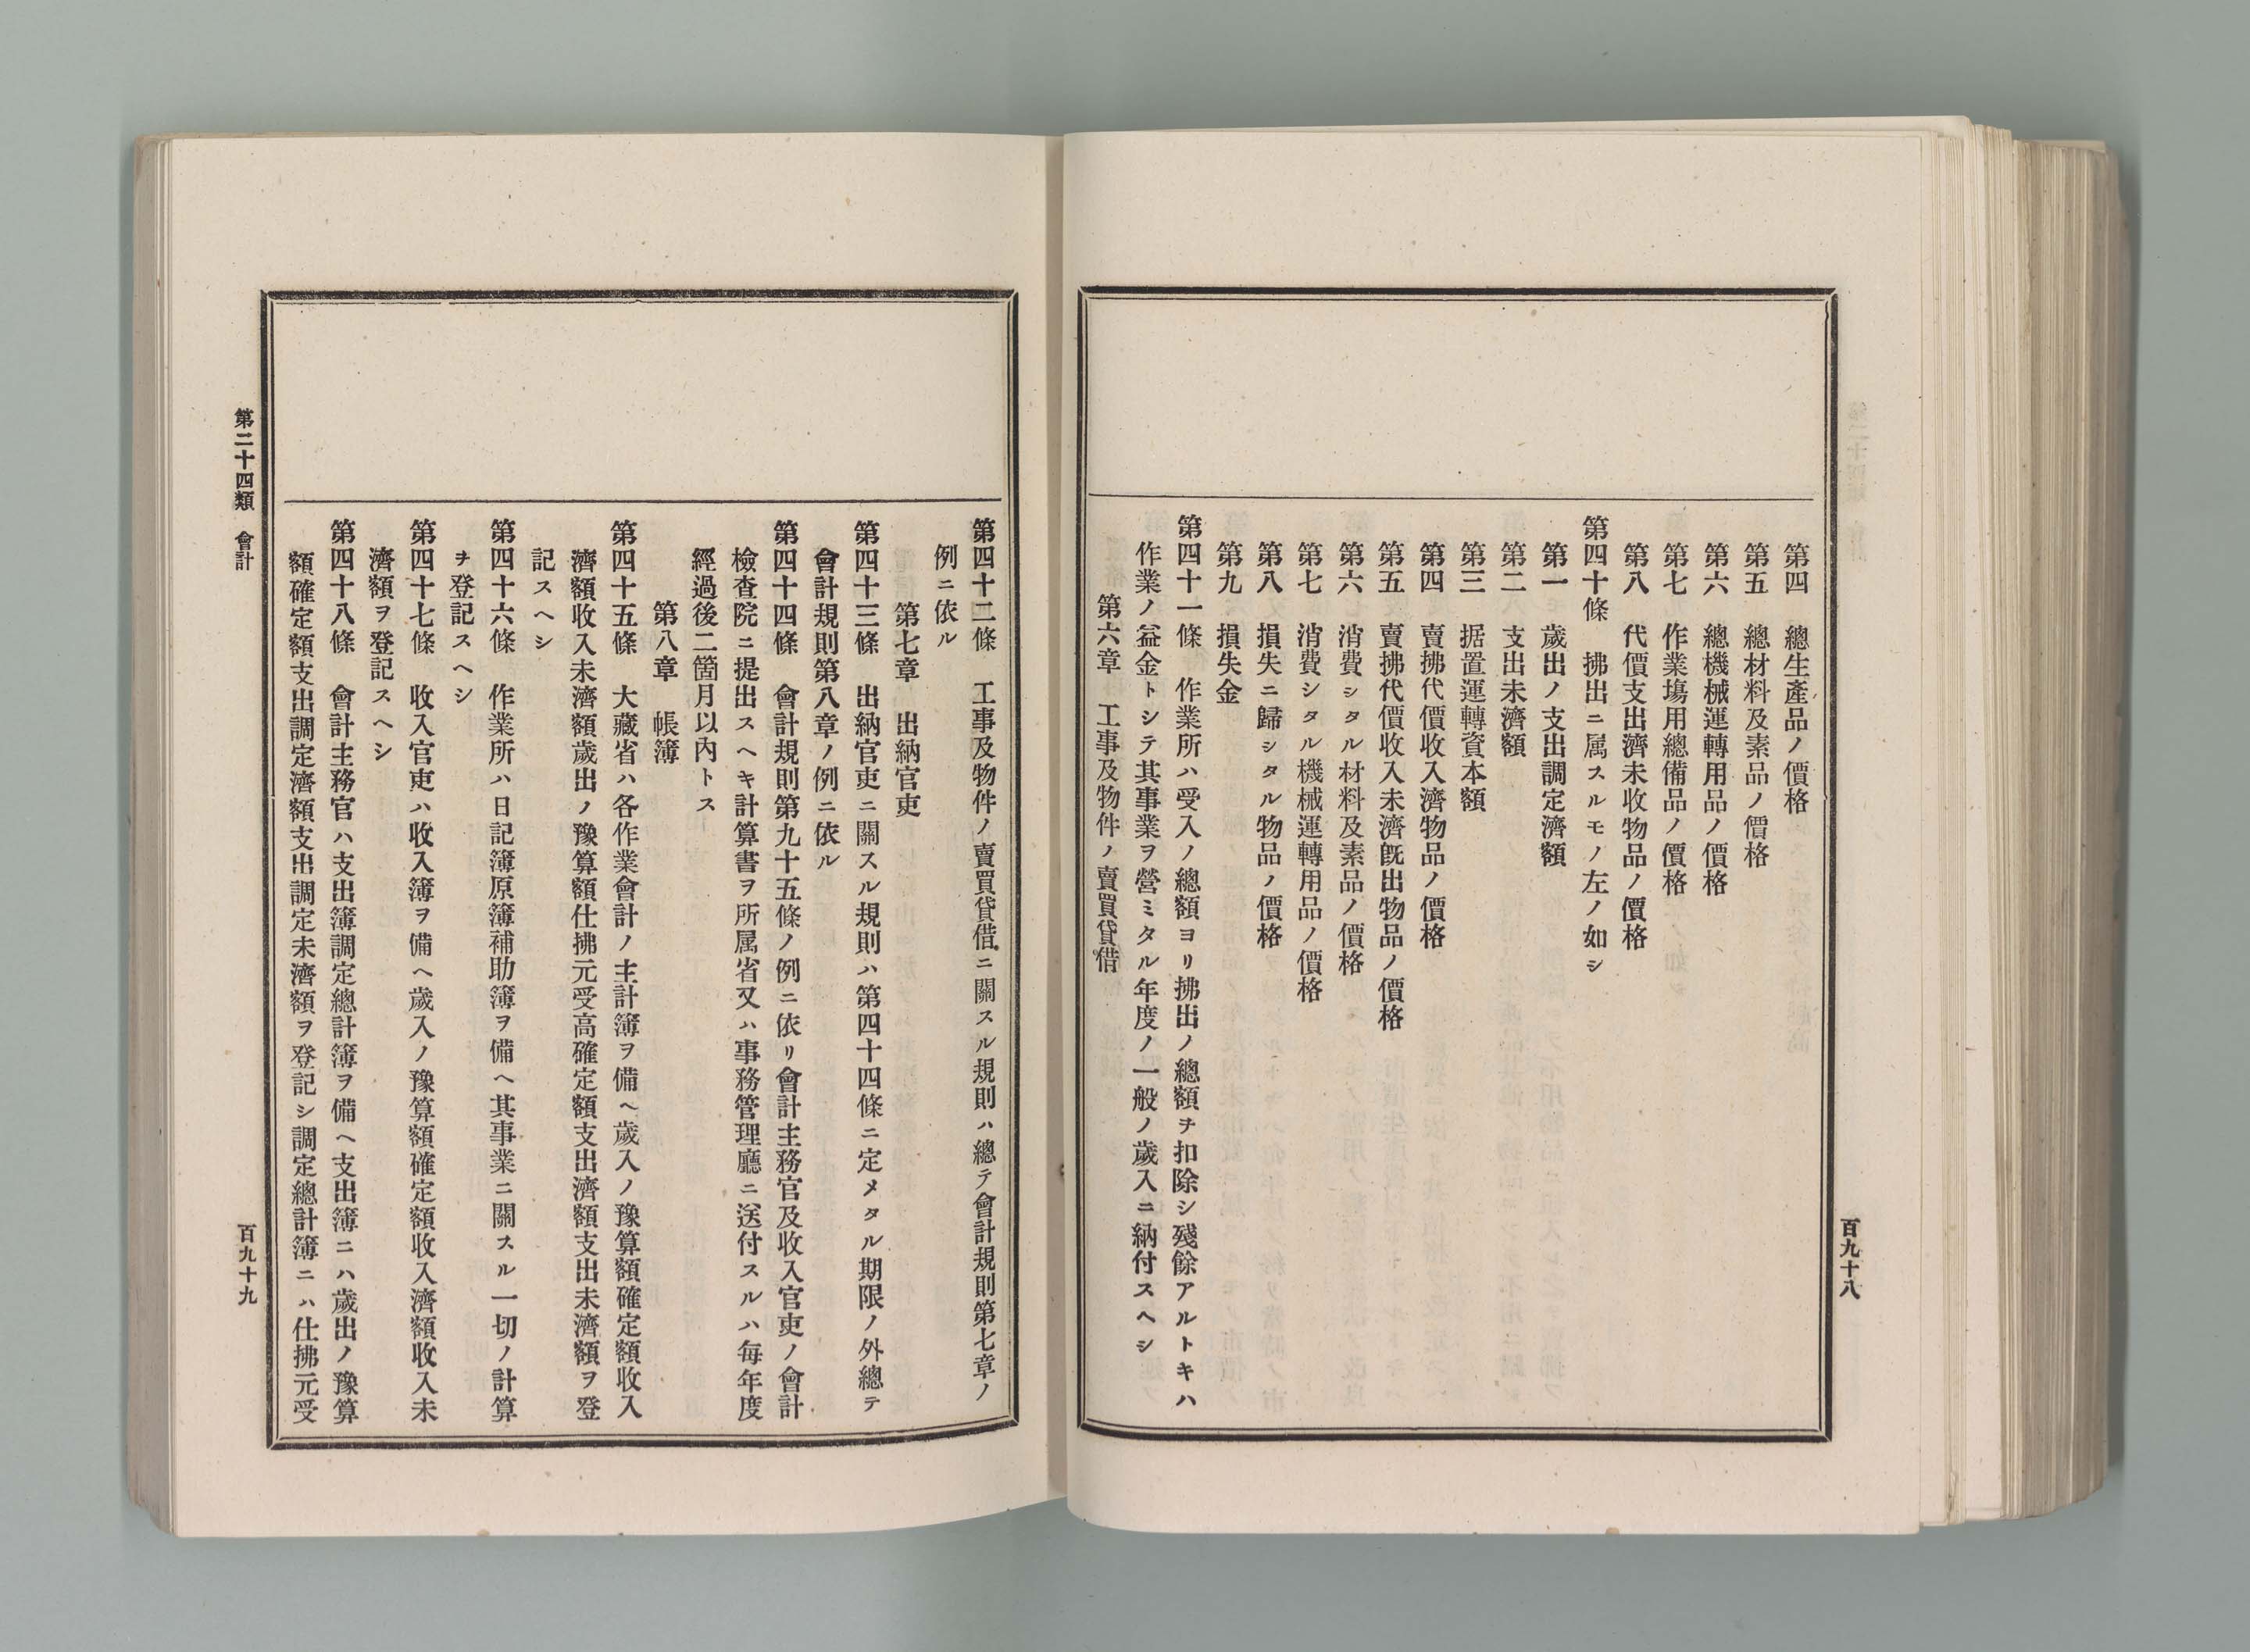 第四　總生產品ノ價格
第五　總材料及素品ノ價格
第六　總機械運轉用品ノ價格
第七　作業塲用總備品ノ價格
第八　代價支出濟未收物品ノ價格
第四十條　拂出ニ属スルモノ左ノ如シ
第一　歲出ノ支出調定濟額
第二　支出未濟額
第三　据置運轉資本額
第四　賣拂代價收入濟物品ノ價格
第五　賣拂代價收入未濟旣出物品ノ價格
第六　消費シタル材料及素品ノ價格
第七　消費シタル機械運轉用品ノ價格
第八　損失ニ歸シタル物品ノ價格
第九　損失金
第四十一條　作業所ハ受入ノ總額ヨリ拂出ノ總額ヲ扣除シ殘餘アルトキハ
作業ノ益金トシテ其事業ヲ營ミタル年度ノ一般ノ歲入ニ納付スヘシ
第六章　工事及物件ノ賣買貸借
百九十八
第四十二條　工事及物件ノ賣買貸借ニ關スル規則ハ總テ會計規則第七章ノ
例ニ依ル
第七章　出納官吏
第四十三條　出納官吏ニ關スル規則ハ第四十四條ニ定メタル期限ノ外總テ
會計規則第八章ノ例ニ依ル
第四十四條　會計規則第九十五條ノ例ニ依リ會計主務官及收入官吏ノ會計
檢查院ニ提出スヘキ計算書ヲ所属省又ハ事務管理廳ニ送付スルハ每年度
經過後二箇月以內トス
第八章　帳簿
第四十五條　大藏省ハ各作業會計ノ主計簿ヲ備ヘ歲入ノ豫算額確定額收入
濟額收入未濟額歲出ノ豫算額仕拂元受高確定額支出濟額支出未濟額ヲ登
記スヘシ
第四十六條　作業所ハ日記簿原簿補助簿ヲ備ヘ其事業ニ關スル一切ノ計算
ヲ登記スヘシ
第四十七條　收入官吏ハ收入簿ヲ備ヘ歲入ノ豫算額確定額收入濟額收入未
濟額ヲ登記スヘシ
第四十八條　會計主務官ハ支出簿調定總計簿ヲ備ヘ支出簿ニハ歲出ノ豫算
額確定額支出調定濟額支出調定未濟額ヲ登記シ調定總計簿ニハ仕拂元受
第二十四類　會計
百九十九